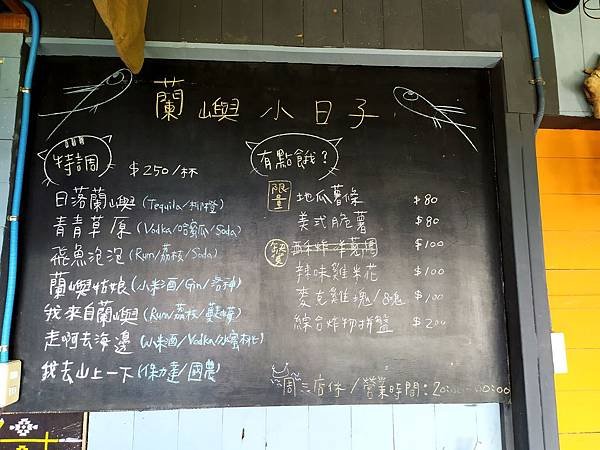 蘭嶼小日子
特調 $250/杯
日落蘭嶼 (Tequila/柳橙)
青青草原 (Vodka/哈蜜瓜/Soda)
飛魚泡泡 (Rum/荔枝/Soda)
蘭嶼姑娘 (小米酒/Gin/洛神)
我來自蘭嶼 (Rum/荔枝/蔓越莓)
走啊去海邊 (小米酒/Vodka/水蜜桃)
我去山上一下 (保力達/國農)
有點餓?
限量 地瓜薯條 $80
美式脆薯 $80
酥炸洋蔥圈 $100
辣味雞米花 $100
麥克雞塊/8塊 $100
綜合炸物拼盤 $200
周三店休/營業時間:20:00-00:00